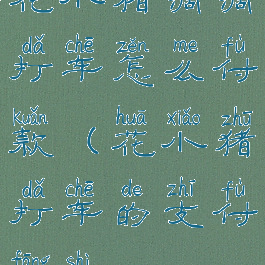 花小猪滴滴
dǎ chē zěn me fù
打车怎么付
kuǎn huā xiǎo zhū
款（花小猪
dǎ chē de zhī fù
打车的支付
fāng shì